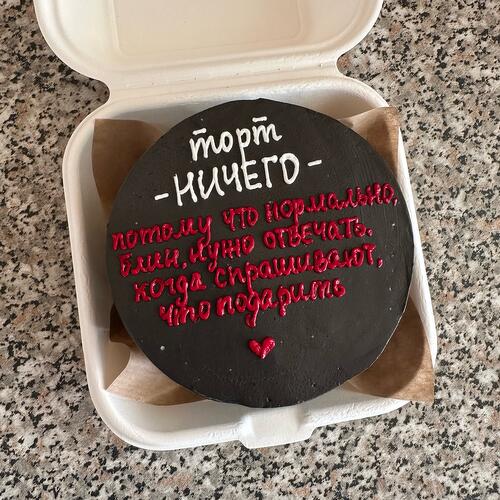 торт
-НИЧЕГО-
потому что нормально,
блин, нужно отвечать,
когда спрашивают,
что подарить